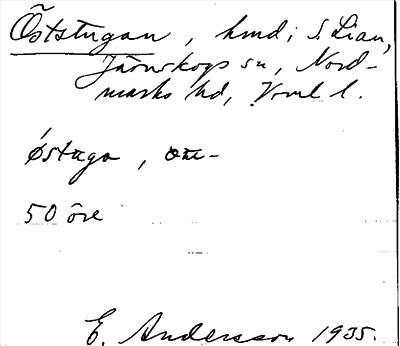 Öststugan, hmd i S. Lian,
Järnskogs sn, Nord-
marks hd, Vrml l.
östuga, 
50 öre
E. Andersson 1935.